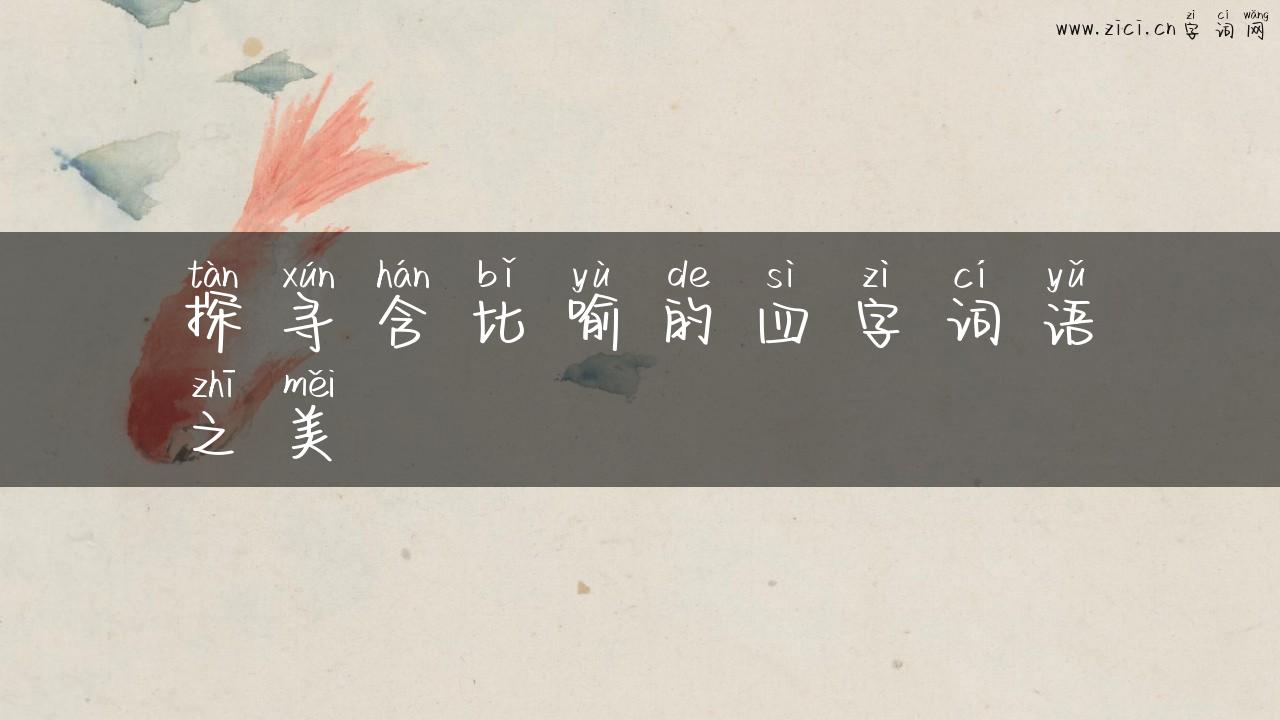 zì cí wǎng
www.zici.cn 字词网
tàn xún hán bǐ yù de sì zì cí yǔ
探寻含比喻的四字词语
zhī měi
之美